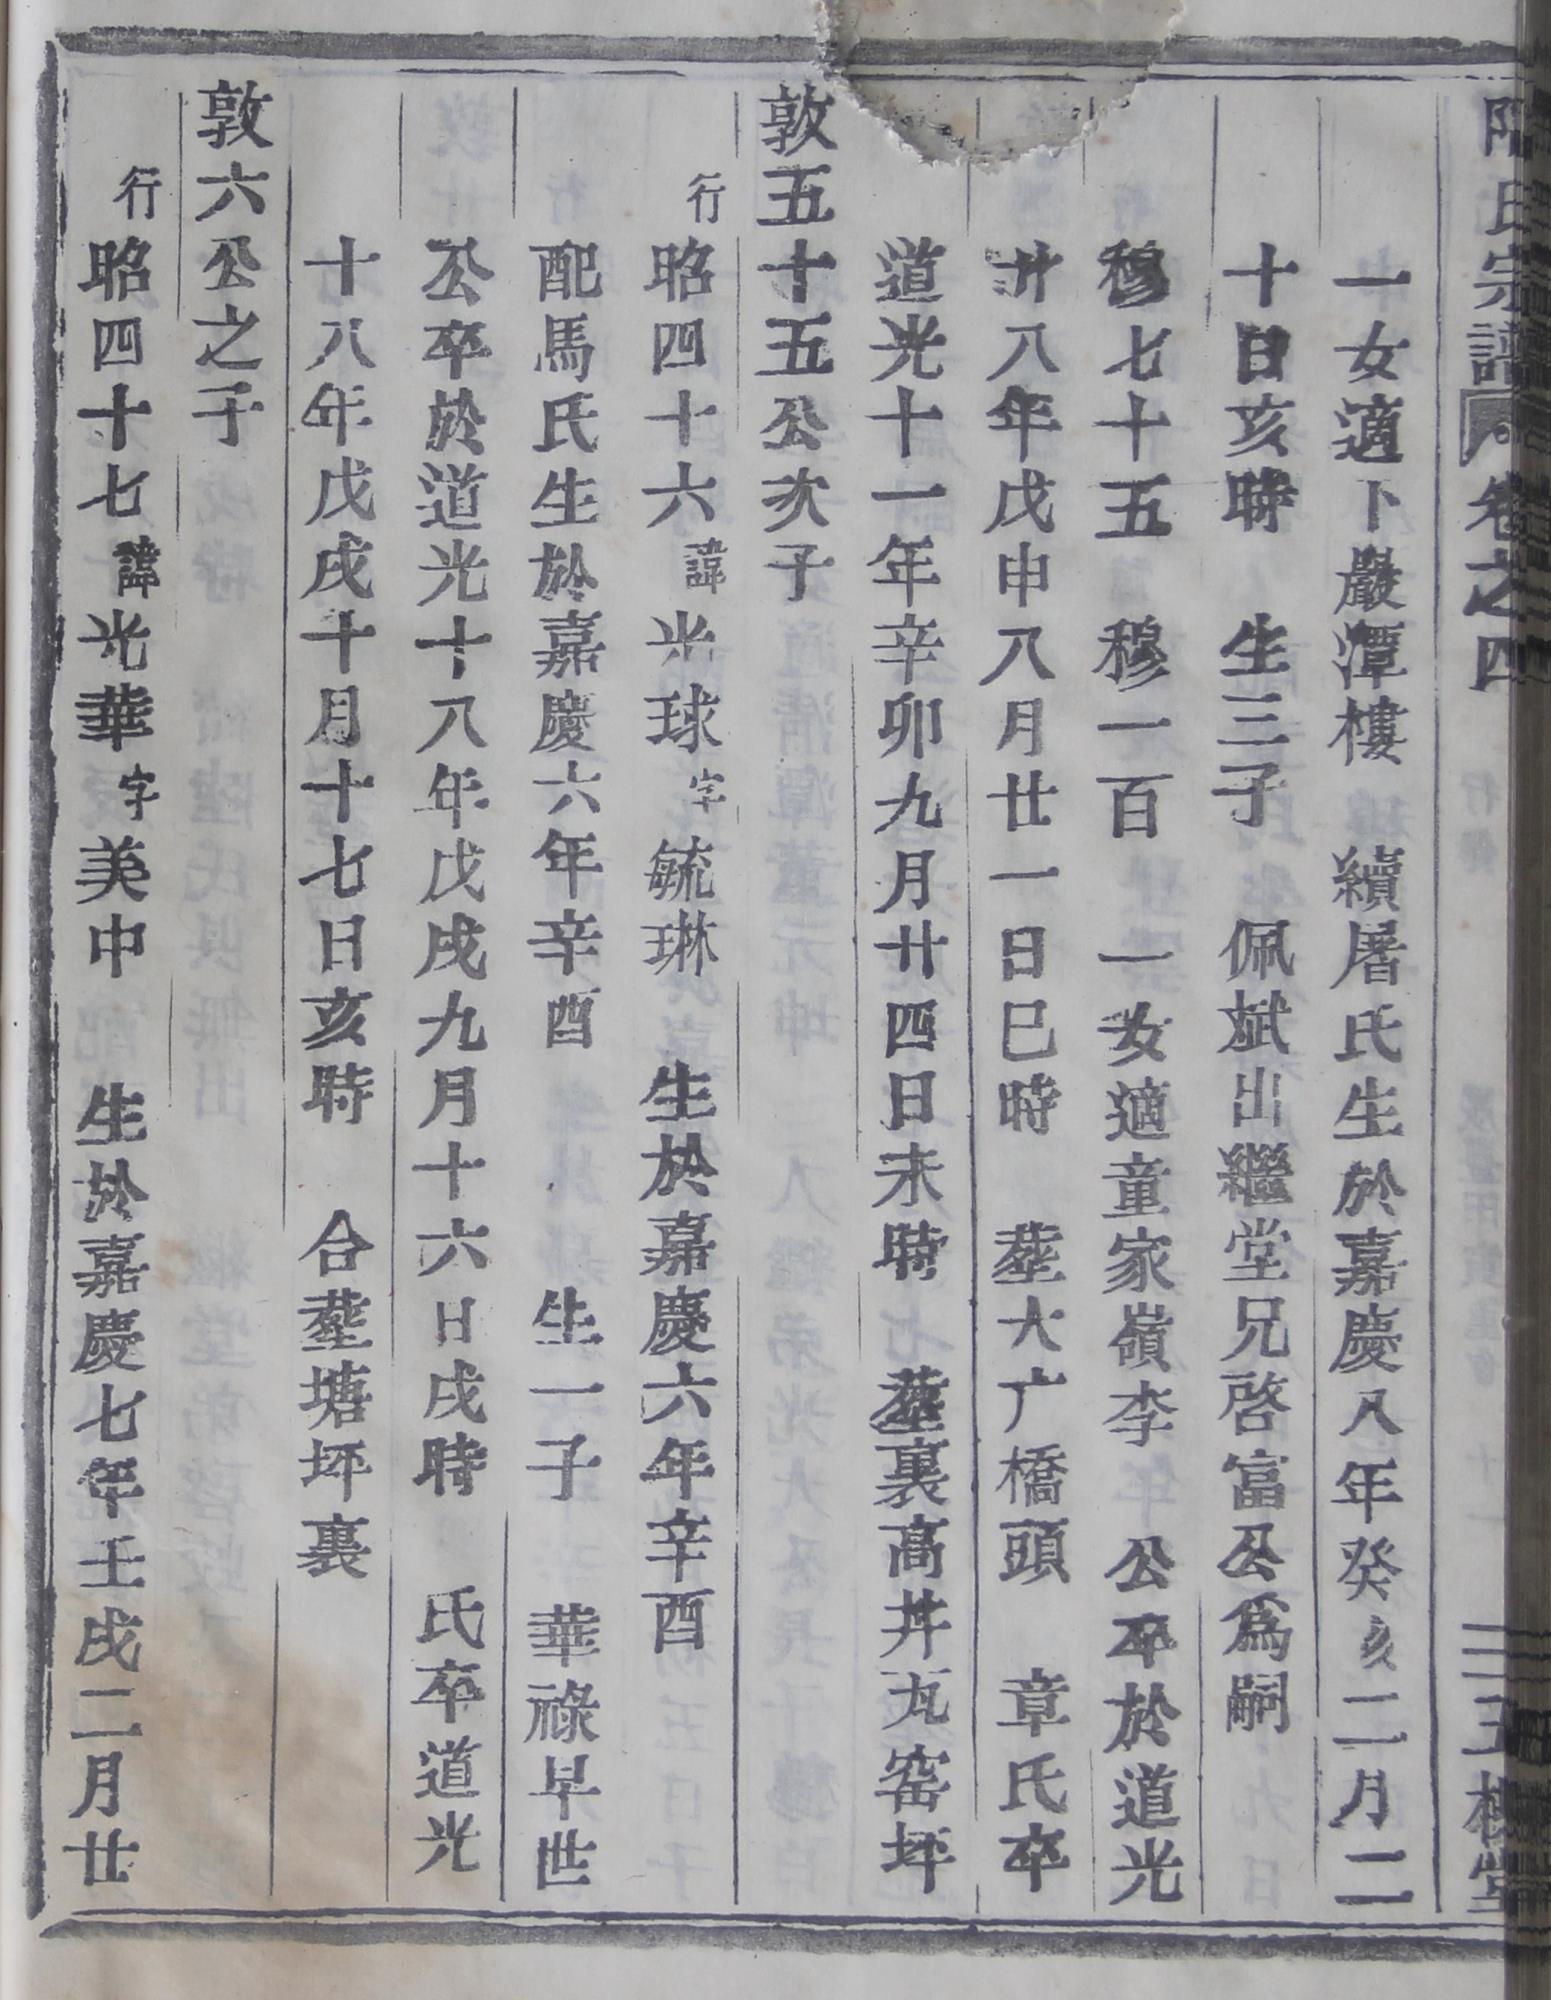 氏宗譜 卷之四
一女適卜嚴潭樓 續屠氏生於嘉慶八年癸亥二月二
十日亥時 生三子 佩斌出繼堂兄啓富公爲嗣
穆七十五 穆一百 一女適童家嶺李 公卒於道光
廿八年戊申八月廿一日巳時 塟大广橋頭 章氏卒
道光十一年辛卯九月廿四日未時 塟裏高丼瓦窑坪
敦五十五公次子
行昭四十六諱光球字毓琳 生於嘉慶六年辛酉
配馬氏生於嘉慶六年辛酉 生一子 華祿早世
公卒於道光十八年戊戌九月十六日戌時 氏卒道光
十八年戊戌十月十七日亥時 合塟塘坪裏
敦六公之子
行昭四十七諱光華字美中 生於嘉慶七年壬戌二月廿